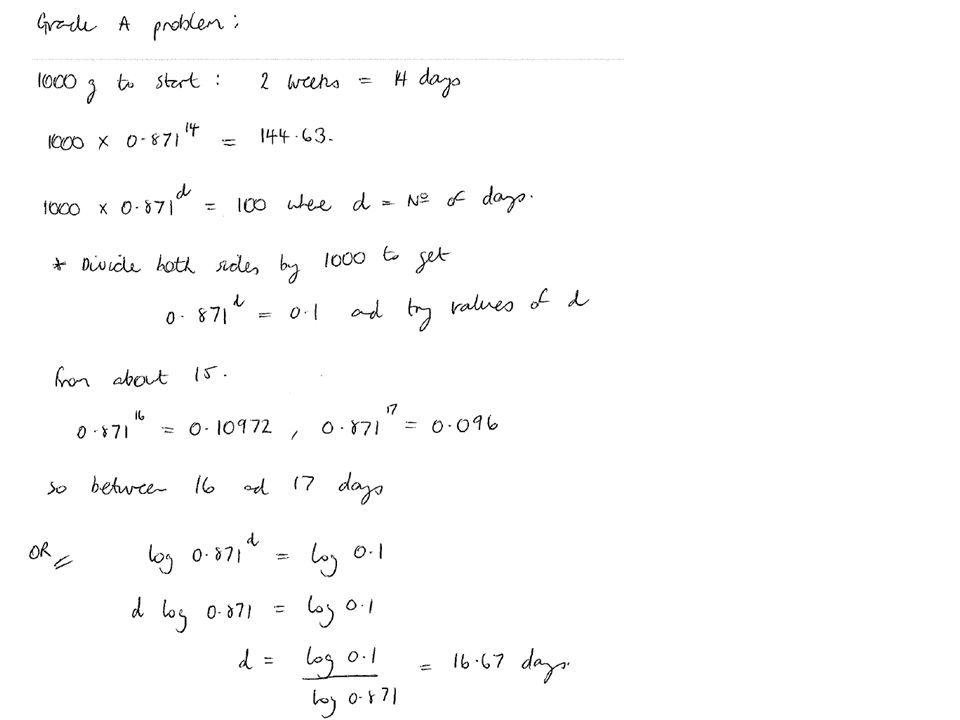 Grade A problem:
1000 g to start : 2 weeks = 14 days
1000 × 0.871^14 = 144.63.
1000 × 0.871^d = 100 whee d = Nº of days.
* Divide both sides by 1000 to get
0.871^d = 0.1 ad try values of d
from about 15.
0.871^16 = 0.10972 , 0.871^17 = 0.096
so between 16 ad 17 days
OR log 0.871^d = log 0.1
d log 0.871 = log 0.1
d = log 0.1 / log 0.871 = 16.67 days.